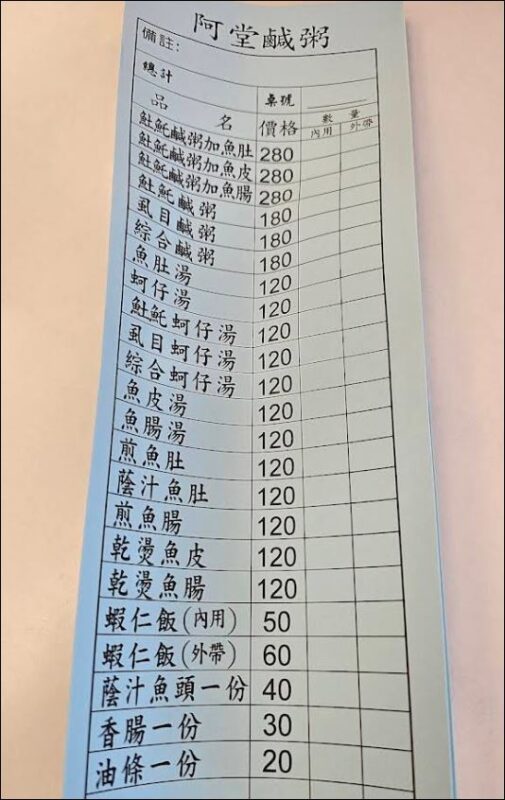 阿堂鹹粥
備註:
總計
桌號
品名 價格 數量
內用 外帶
𩵚魠鹹粥加魚肚 280
𩵚魠鹹粥加魚皮 280
𩵚魠鹹粥加魚腸 280
𩵚魠鹹粥 180
虱目鹹粥 180
綜合鹹粥 180
魚肚湯 120
蚵仔湯 120
𩵚魠蚵仔湯 120
虱目蚵仔湯 120
綜合蚵仔湯 120
魚皮湯 120
魚腸湯 120
煎魚肚 120
蔭汁魚肚 120
煎魚腸 120
乾燙魚皮 120
乾燙魚腸 120
蝦仁飯(內用) 50
蝦仁飯(外帶) 60
蔭汁魚頭一份 40
香腸一份 30
油條一份 20